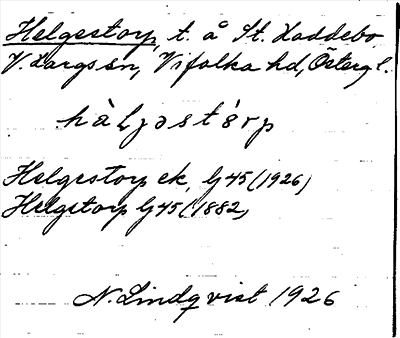 Helgestorp, t. å St. Haddebo
V. Hargs sn, Vifolka hd, Östergl.
hàljəstórp
Helgestorp ek, Gj 45 (1926)
Helgstorp Gj 45 (1882)
N. Lindqvist 1926